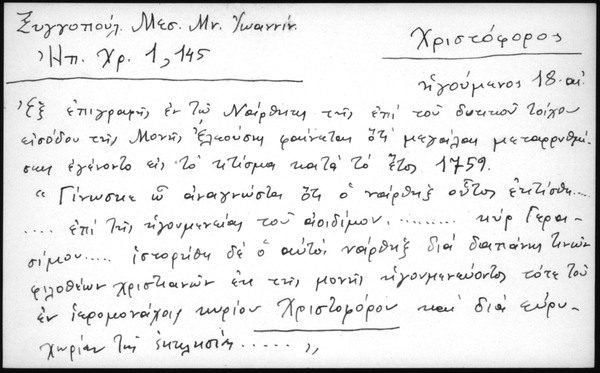 Ξυγγοπούλ. Μεσ. Μν. Ἰωαννίν.
Ἠπ. Χρ. 1, 145
Χριστόφορος
ἡγούμενος 18. αἰ.
Ἐξ ἐπιγραφῆς ἐν τῷ Νάρθηκι τῆς ἐπί τοῦ δυτικοῦ τοίχου
εἰσόδου τῆς Μονῆς Ἐλεούσης φαίνεται ὅτι μεγάλαι μεταρρυθμί-
σεις ἐγένοντο εἰς τό κτίσμα κατά τό ἔτος 1759.
" Γίνωσκε ὦ ἀναγνῶστα ὅτι ὁ νάρθηξ οὗτος ἐκτίσθη....
.... ἐπί τῆς ἡγουμενείας τοῦ ἀοιδίμου ......... κύρ Γερα-
σίμου.... ἱστορίθη δέ ὁ αὐτός νάρθηξ διά δαπάνης τινῶν
φιλοθέων χριστιανῶν ἐκ τῆς μονῆς ἡγουμενεύοντος τότε τοῦ
ἐν ἱερομονάχοις κυρίου Χριστοφόρου καί διά εὐρυ-
χωρίαν τῆς ἐκκλησίας ..... „